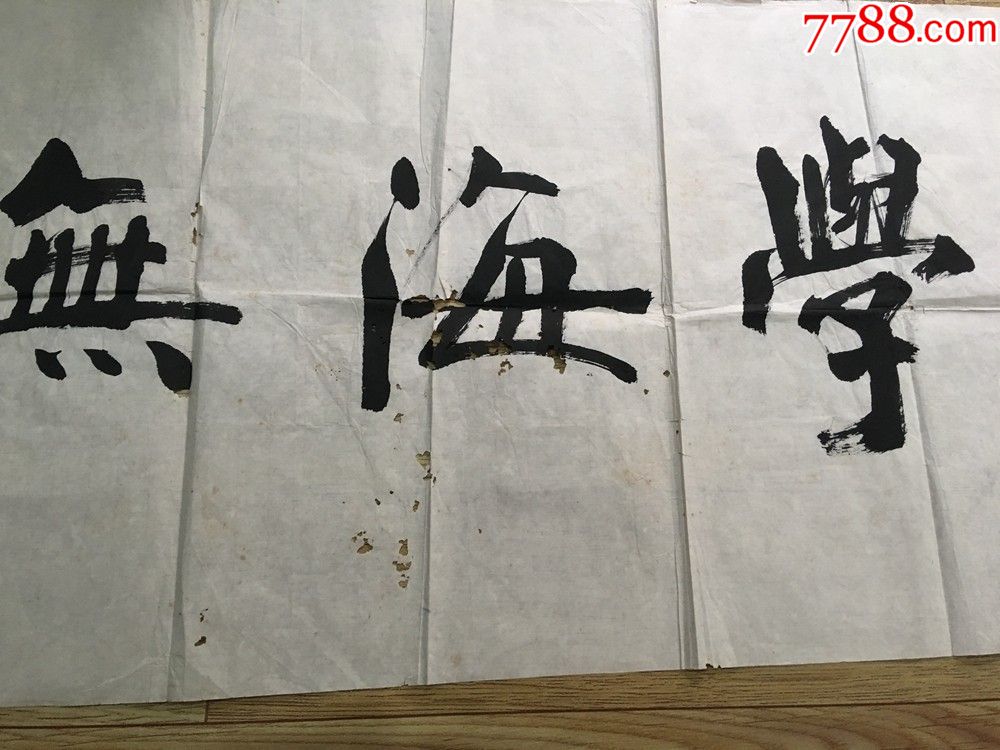 7788.com
學海無